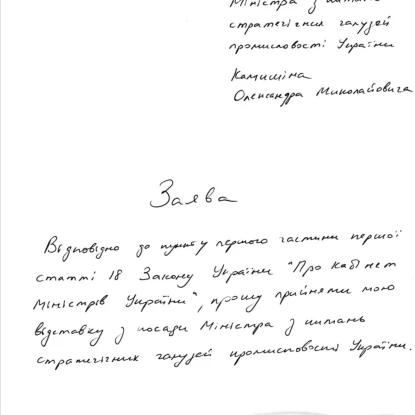 Міністра з питань
стратегічних галузей
промисловості України
Камишіна
Олександра Миколайовича
Заява
Відповідно до пункту першого частини першої
статті 18 Закону України "Про Кабінет
Міністрів України", прошу прийняти мою
відставку з посади Міністра з питань
стратегічних галузей промисловості України.